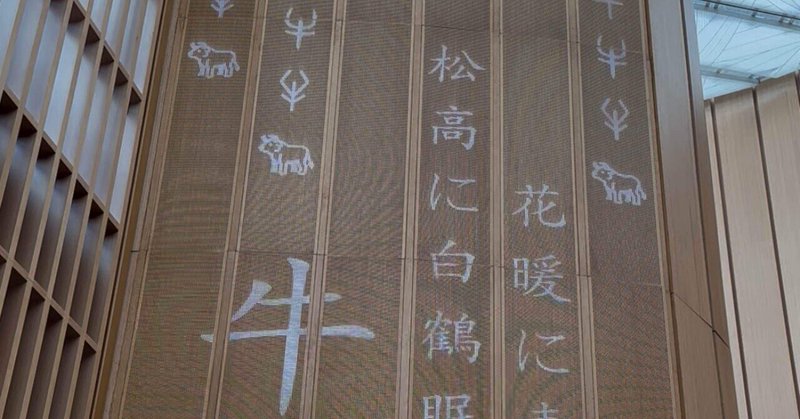 花暖に
松高に白鶴眠
牛